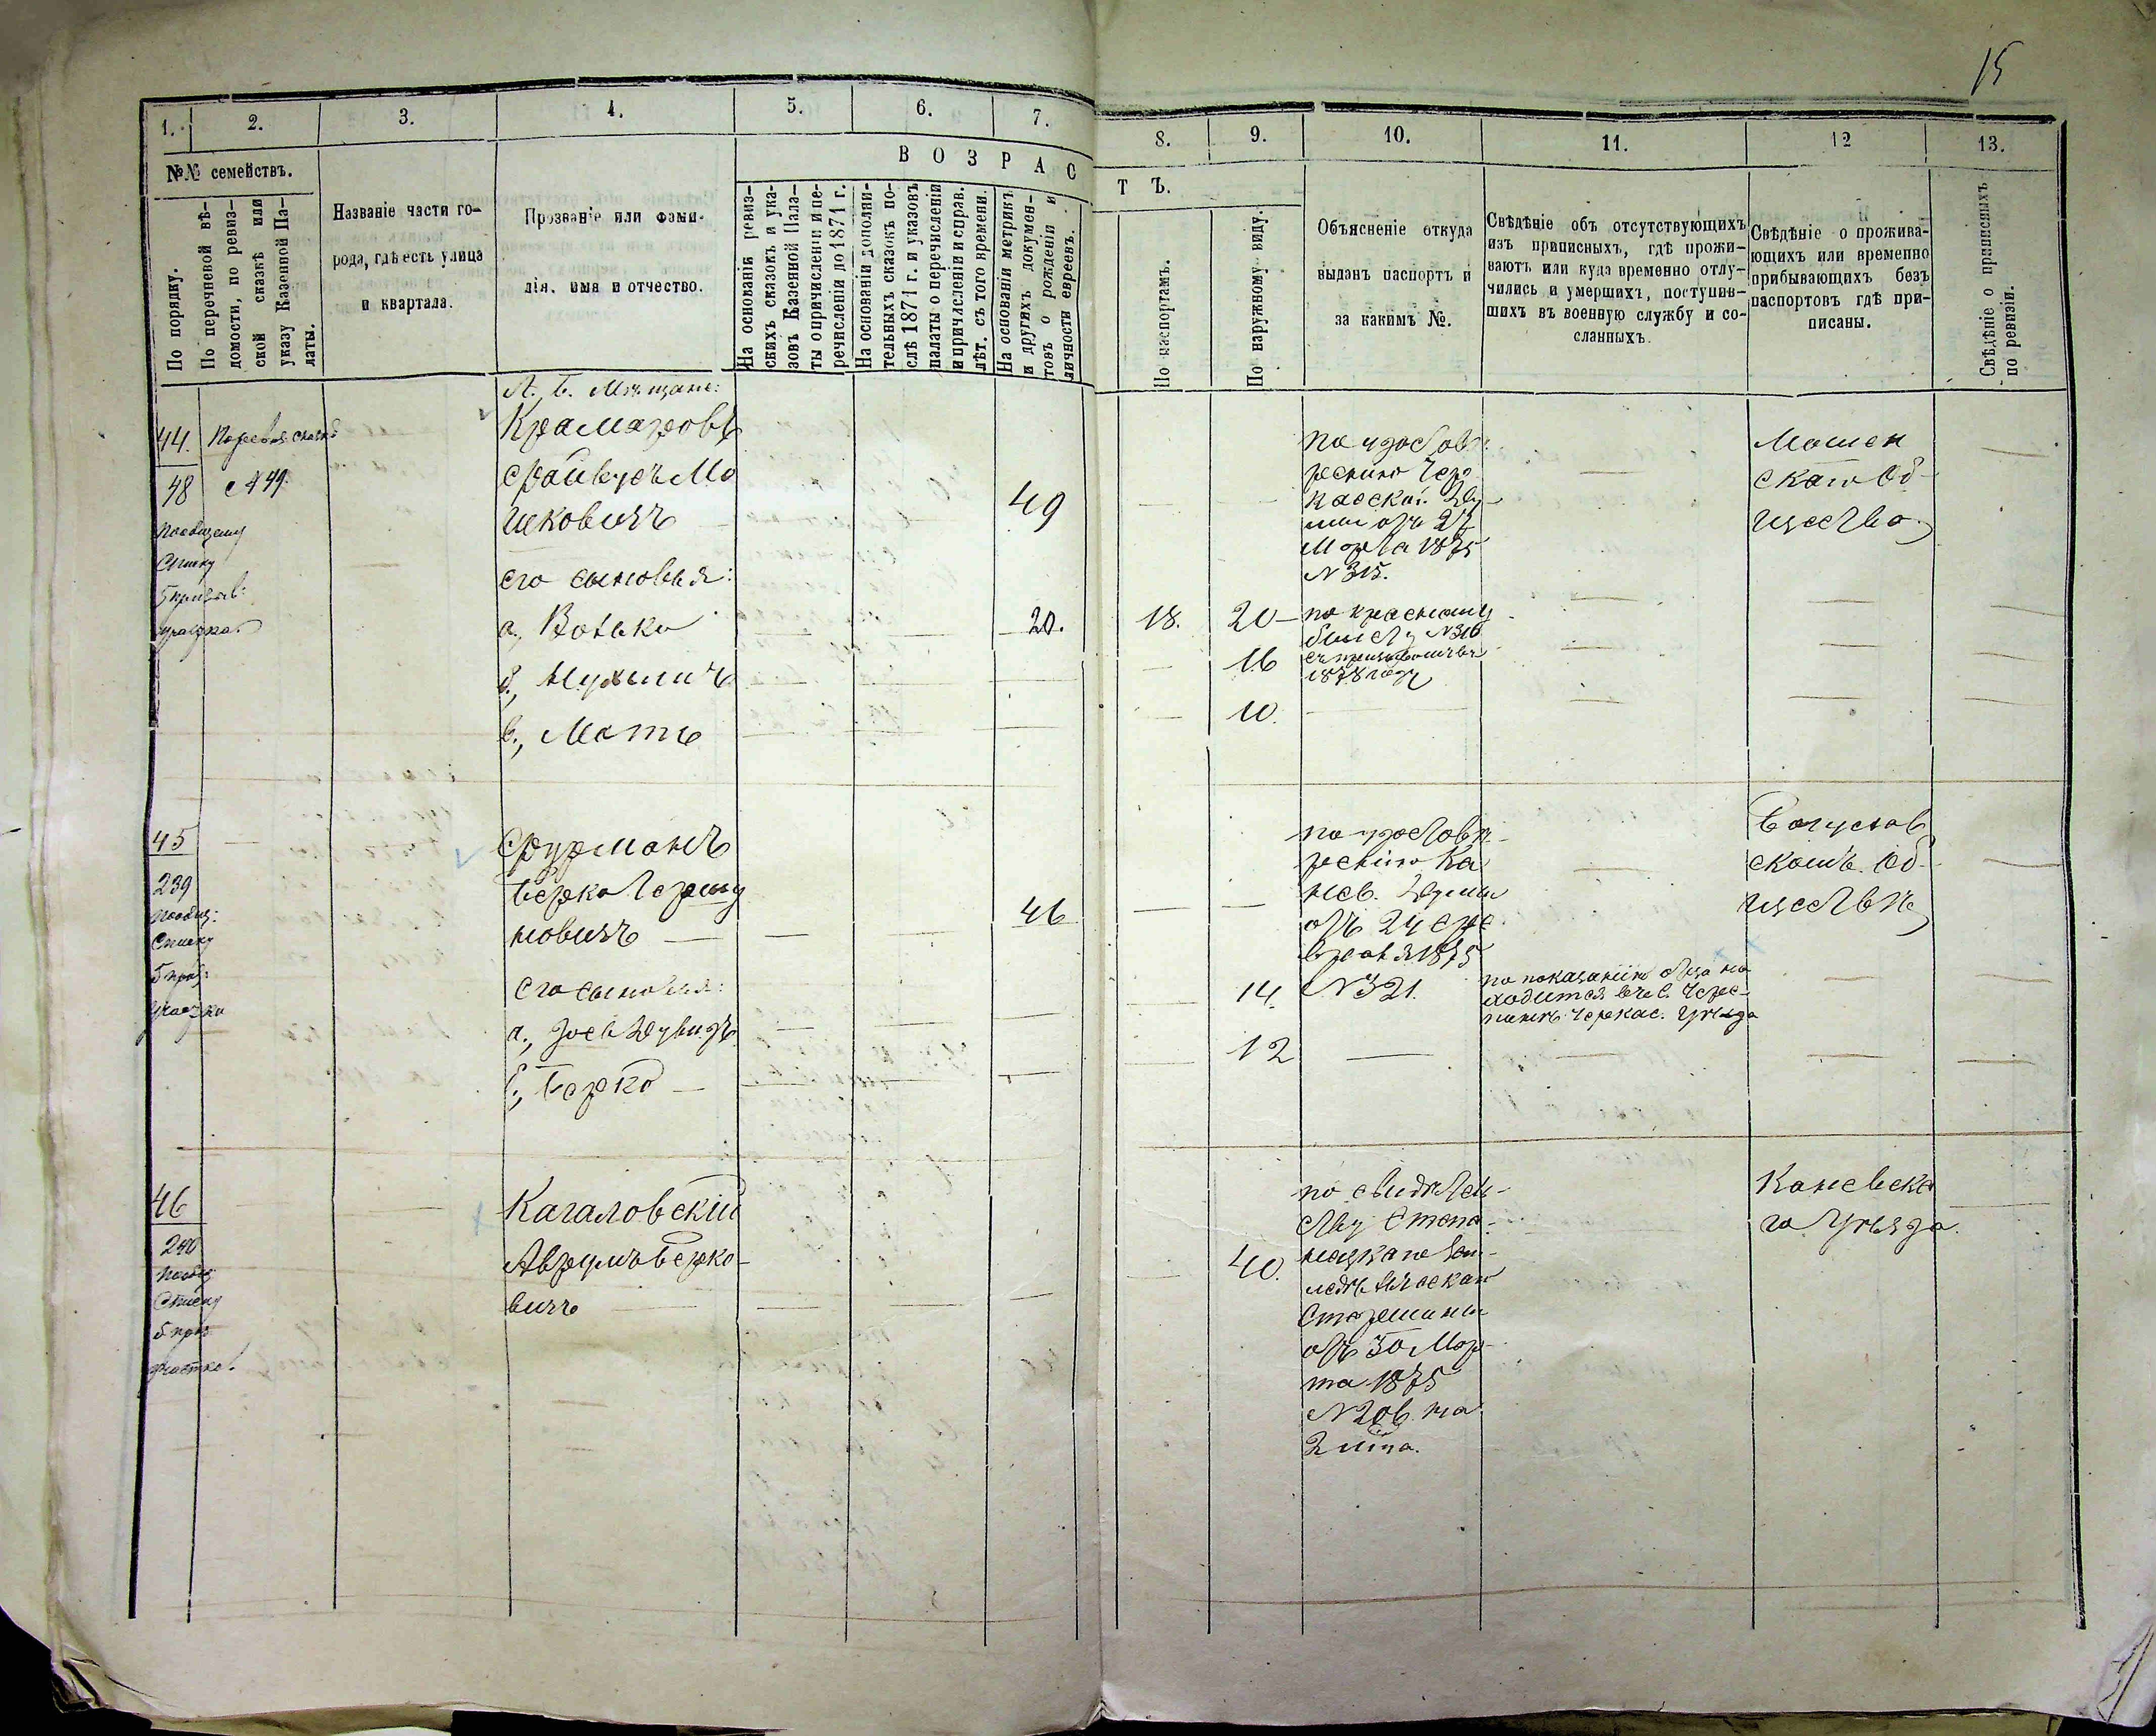 15
1. 2. 3. 4. 5. 6. 7. 8. 9. 10. 11. 12 13.
№№ семействъ.
По порядку.
По перечневой вѣ-
домости, по ревиз-
ской сказкѣ или
указу Казенной Па-
латы.
Названіе части го-
рода, гдѣ есть улица
и квартала.
Прозваніе или фами-
лія, имя и отчество.
ВОЗРАСТЪ.
На основаніи ревиз-
скихъ сказокъ и ука-
зовъ Казенной Пала-
ты о причисленіи и пе-
речисленіи до 1871 г.
На основаніи дополни-
тельныхъ сказокъ по-
слѣ 1871 г. и указовъ
палаты о перечисленіи
и причисленіи и справ.
лѣт. съ того времени.
На основаніи метрикъ
и другихъ докумен-
товъ о рожденіи и
личности евреевъ.
По паспортамъ.
По наружному виду.
Объясненіе откуда
выданъ паспортъ и
за какимъ №.
Свѣдѣніе объ отсутствующихъ
изъ приписныхъ, гдѣ прожи-
ваютъ или куда временно отлу-
чились и умершихъ, поступив-
шихъ въ военную службу и со-
сланныхъ.
Свѣдѣніе о прожива-
ющихъ или временно
прибывающихъ безъ
паспортовъ гдѣ при-
писаны.
Свѣдѣніе о приписныхъ
по ревизіи.
Мѣщане:
44.
48
№ 49.
Крамаровъ
Файвусъ Мо
шковичъ
49
по удостовѣ-
ренію Чер
каской Ду-
мы отъ 27
Марта 1875
№ 315.
Мошен
скаго Об-
щества
Списку
его сыновья:
а., Волько
20.
18.
20
по красному
билету № 316
1878 году
б., Нухымъ
16
в., Мотъ
10.
45
239
Фурманъ
Берко Гершу
новичъ
46
по удостовѣ-
ренію Ка
нев. Думы
отъ 24 Фе
враля 1875
№ 321.
Богуслав
скомъ Об-
ществѣ
Списку
его сыновья:
а., Іось Дувидъ
14.
по показанію отца на
ходится въ с.
Черкас. Уѣзда
б., Берко
12
46
240
Кагаловскій
Аврумъ Берко-
вичъ
40.
по свидѣтель-
ству Степа-
Старшины
отъ 30 Мар-
та 1875
№ 206 на
Каневска
го Уѣзда.
Списку
участка.